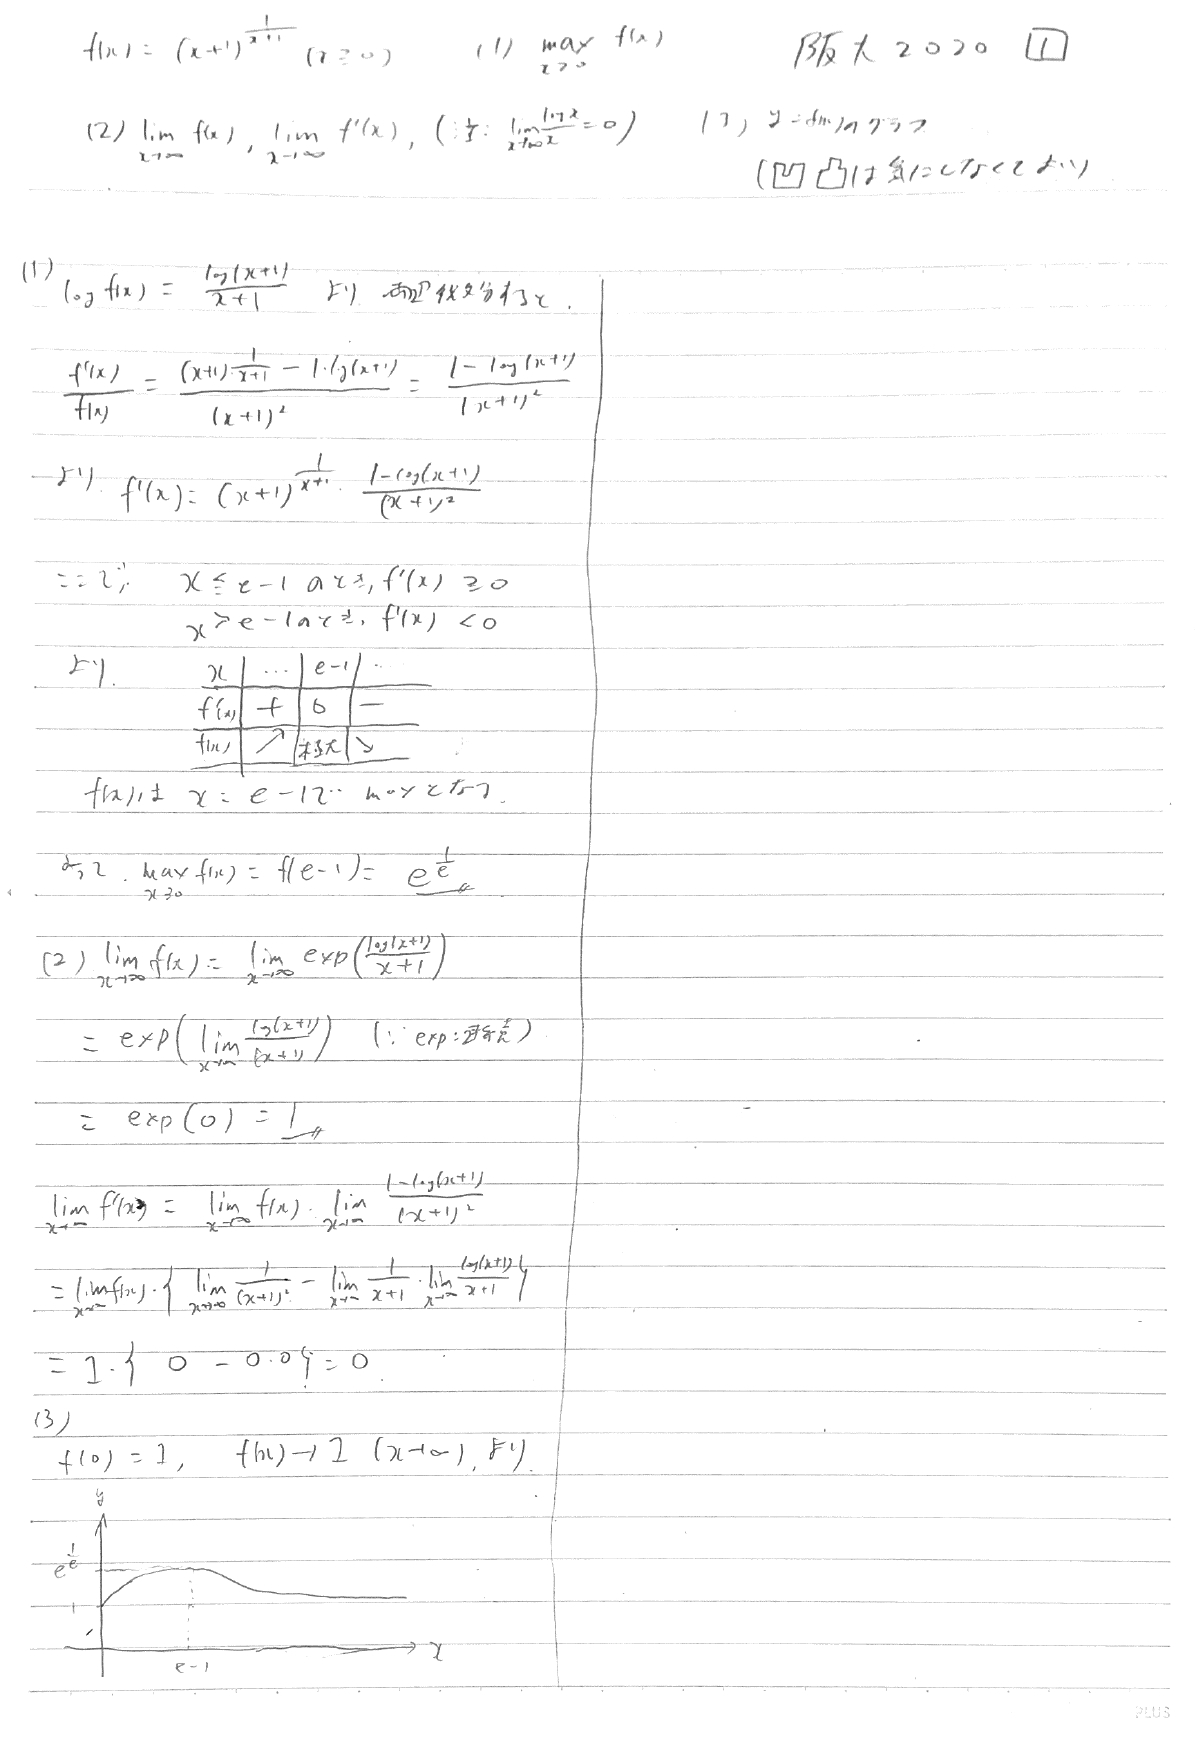 f(x) = (x+1)^{\frac{1}{x+1}} (x≧0) (1) max_{x≧0} f(x) 阪大2020 1
(2) lim_{x→∞} f(x), lim_{x→∞} f'(x), (注: lim_{x→∞} \frac{log x}{x} = 0) (3) y=f(x)のグラフ
(凹凸は気にしなくてよい)
(1) log f(x) = \frac{log(x+1)}{x+1} より
\frac{f'(x)}{f(x)} = \frac{(x+1)\cdot\frac{1}{x+1} - 1・log(x+1)}{(x+1)^2} = \frac{1-log(x+1)}{(x+1)^2}
より. f'(x) = (x+1)^{\frac{1}{x+1}}・\frac{1-log(x+1)}{(x+1)^2}
ここで, x≦e-1 のとき, f'(x) ≧0
x>e-1のとき, f'(x) <0
より. x | … | e-1 | …
f'(x) | + | 0 | −
f(x) | ↗ | 極大 | ↘
f(x)は x = e-1で maxとなる.
よって. max_{x≧0} f(x) = f(e-1) = e^{\frac{1}{e}}
(2) lim_{x→∞} f(x) = lim_{x→∞} exp(\frac{log(x+1)}{x+1})
= exp(lim_{x→∞} \frac{log(x+1)}{(x+1)}) (∵ exp:連続)
= exp(0) = 1
lim_{x→∞} f'(x) = lim_{x→∞} f(x)・lim_{x→∞} \frac{1-log(x+1)}{(x+1)^2}
= lim_{x→∞} f(x)・{ lim_{x→∞} \frac{1}{(x+1)^2} - lim_{x→∞} \frac{1}{x+1}・lim_{x→∞} \frac{log(x+1)}{x+1} }
= 1・{ 0 - 0・0 } = 0
(3)
f(0) = 1, f(x)→1 (x→∞), より.
y
e^{\frac{1}{e}}
1
x
e-1
PLUS